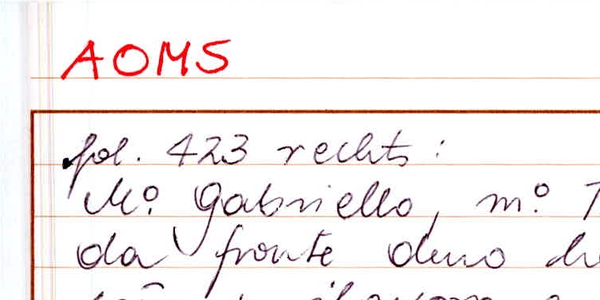 AOMS
fol. 423 rechts:
Mº. Gabriello, mº.
da fronte deno